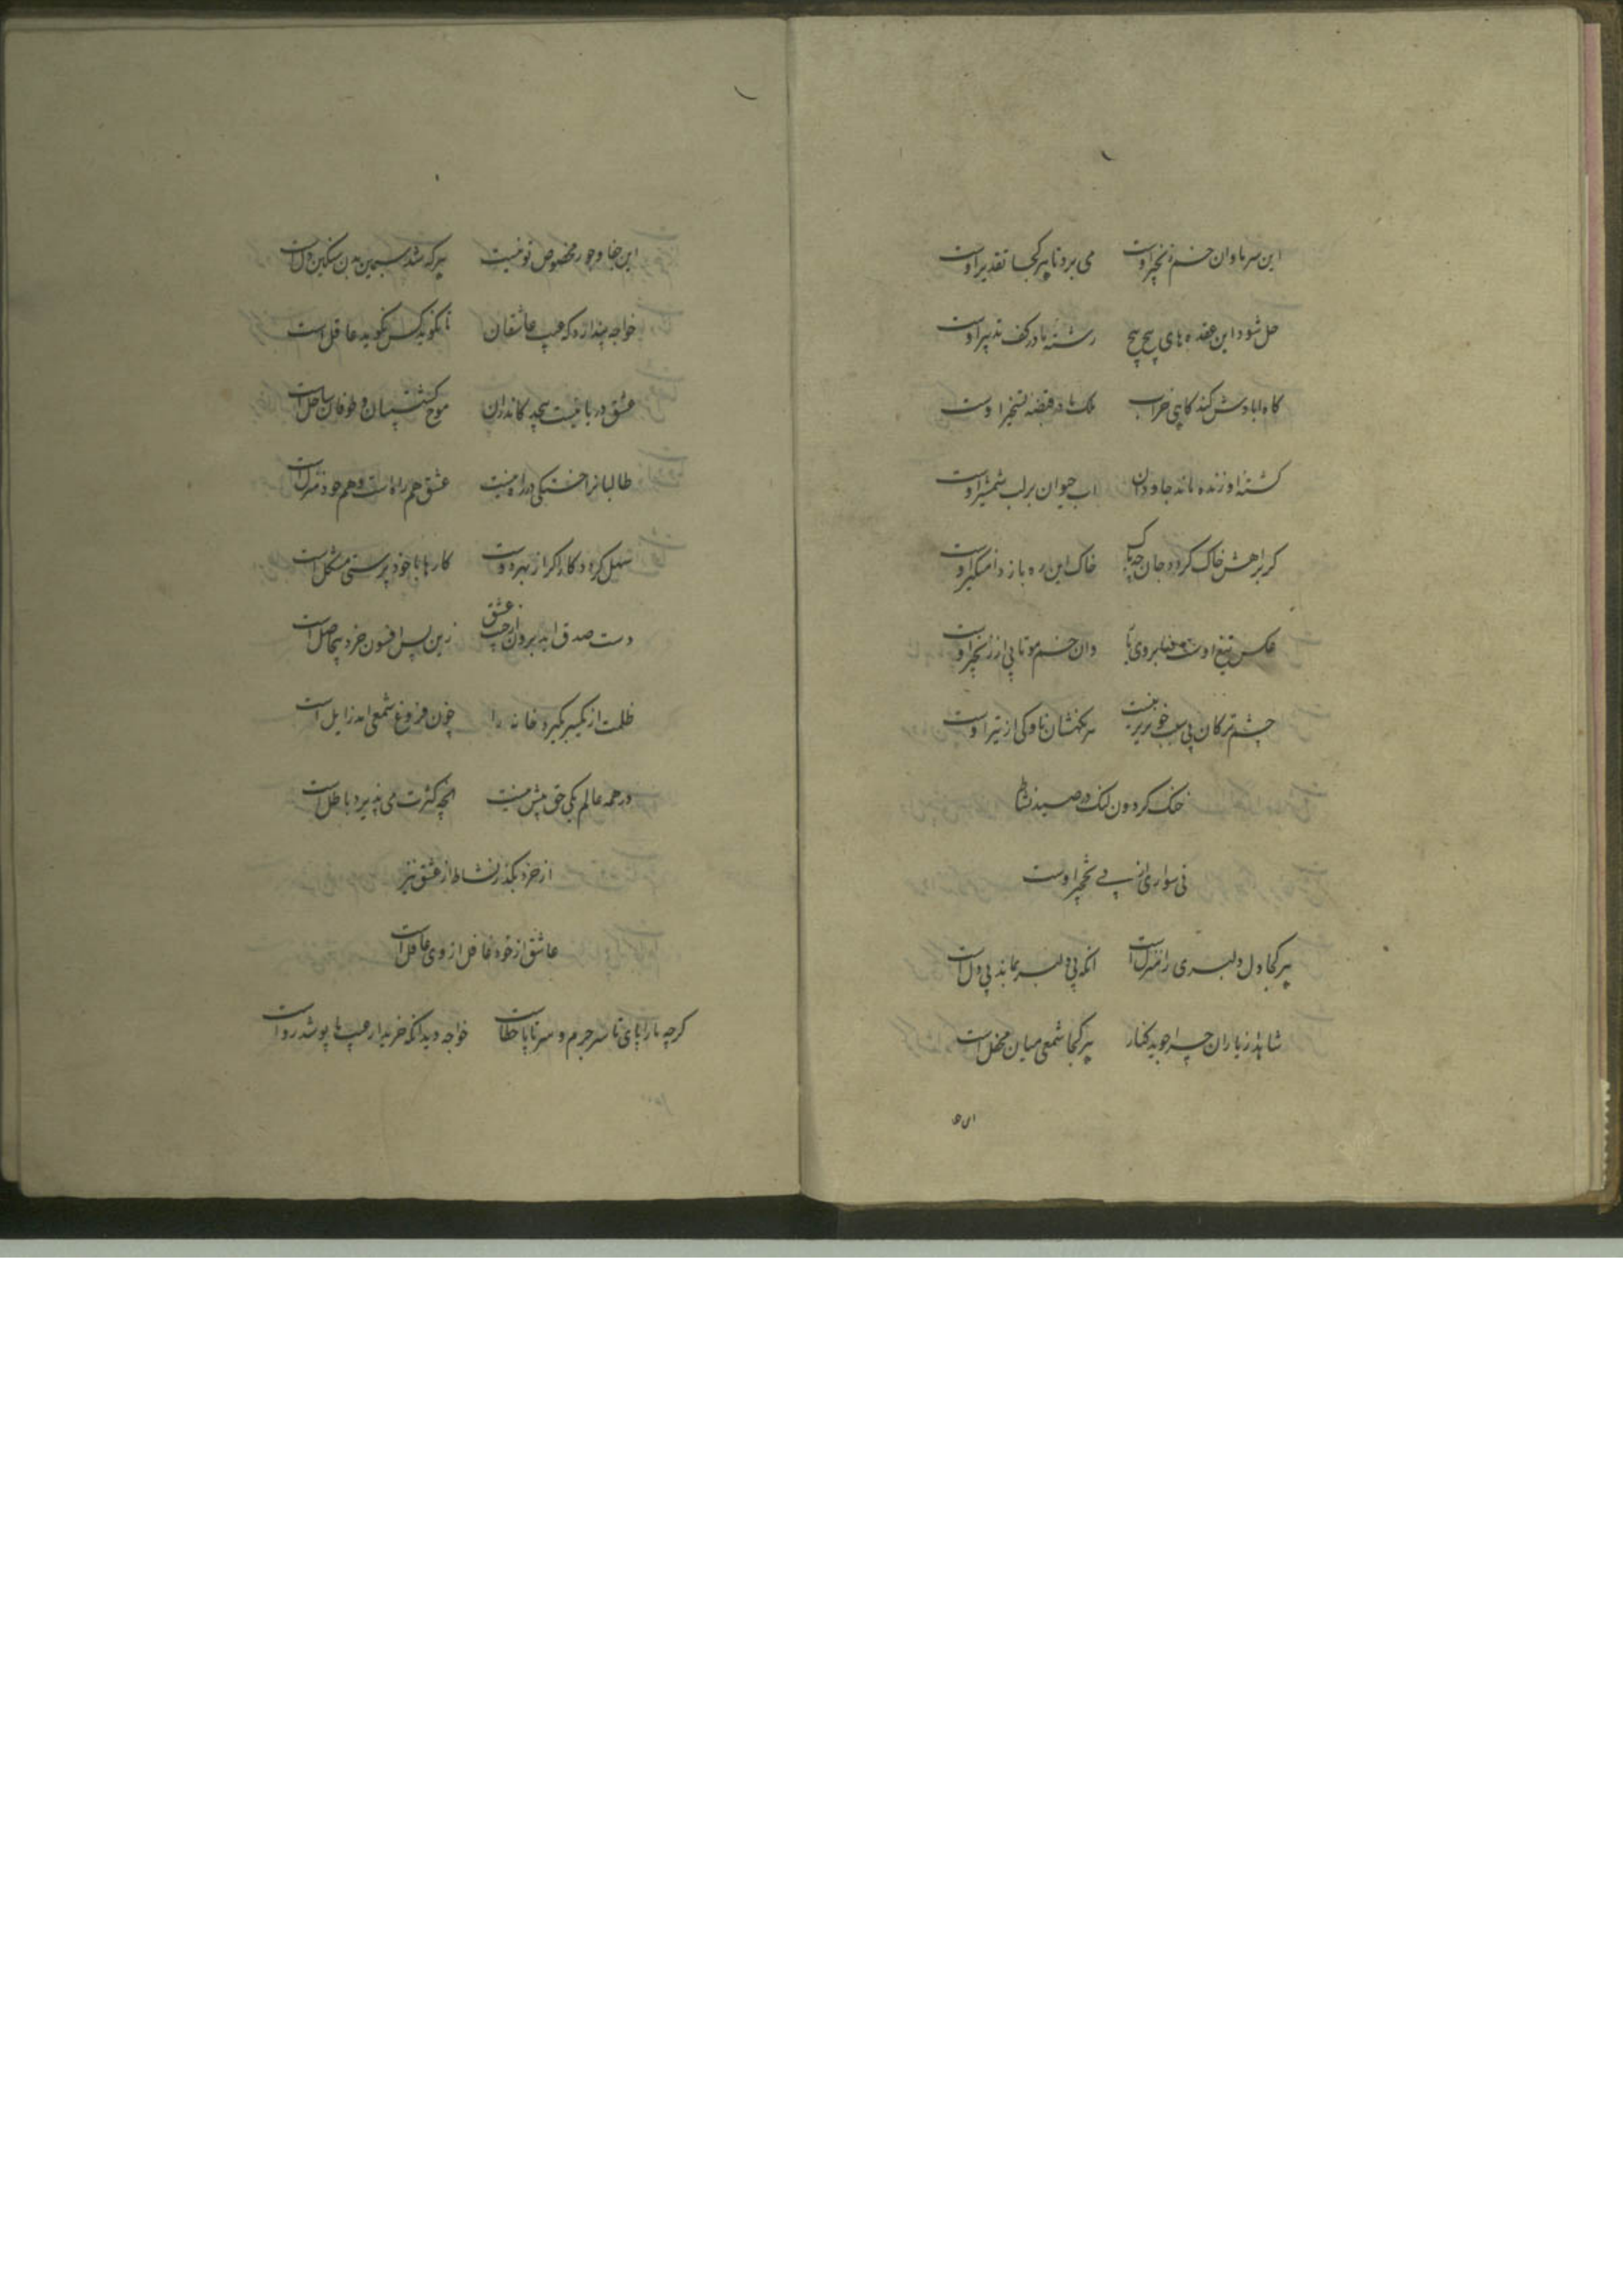 این سر ما وان خم زنجیر اوست می برد تا هر کجا تقدیر اوست
حل شود این عقده های پیچ پیچ رشته ها در کف تدبیر اوست
کاه ابادش کند کاهی خراب ملک ها در قبضه تسخیر اوست
کشته او زنده ماند جاودان اب حیوان بر لب شمشیر اوست
کر براهش خاک کردد جان چه باک خاک این ره باز دامنگیر اوست
عکس تیغ اوست در ابروی وان خم مو تابی از زنجیر اوست
چشم ترکان بی سبب خونریز نیست هر نگهشان ناوکی از تیر اوست
خنک کردون لنک در صید نشاط
نی سواری از پی نخچیر اوست
هر کجا دل دلبری را منزل است انکه بی دلبر بماند بی دل است
شاهد زیاران چرا جوید کنار هر کجا شمعی میان محفل است
این جفا و جور مخصوص تو نیست هر که شد سیمین بدن سنکین دل است
خواجه پندارد که عیب عاشقان تا نکوید کس نکوید عاقل است
عشق دریائیست بیحد کاندران موج کشتیبان و طوفان ساحل است
طالبانرا خستکی در راه نیست عشق هم راه است و هم خود منزل است
سهل کردد کار اکر از بهر دوست کارها با خود پرستی مشکل است
دست صدق امد برون از جیب عشق زین پس افسون خرد بیحاصل است
ظلمت ار یکسر بکیرد خانه را چون فروغ شمعی امد زایل است
در همه عالم یکی حق بیش نیست انچه کثرت می پذیرد باطل است
از خرد بکذر نشاط از عشق نیز
عاشق از خود غافل از وی غافل است
کرچه ما را پای تا سر جرم و سر تا پا خطاست خواجه دید انکه خریدار عیب ها پوشد رواست